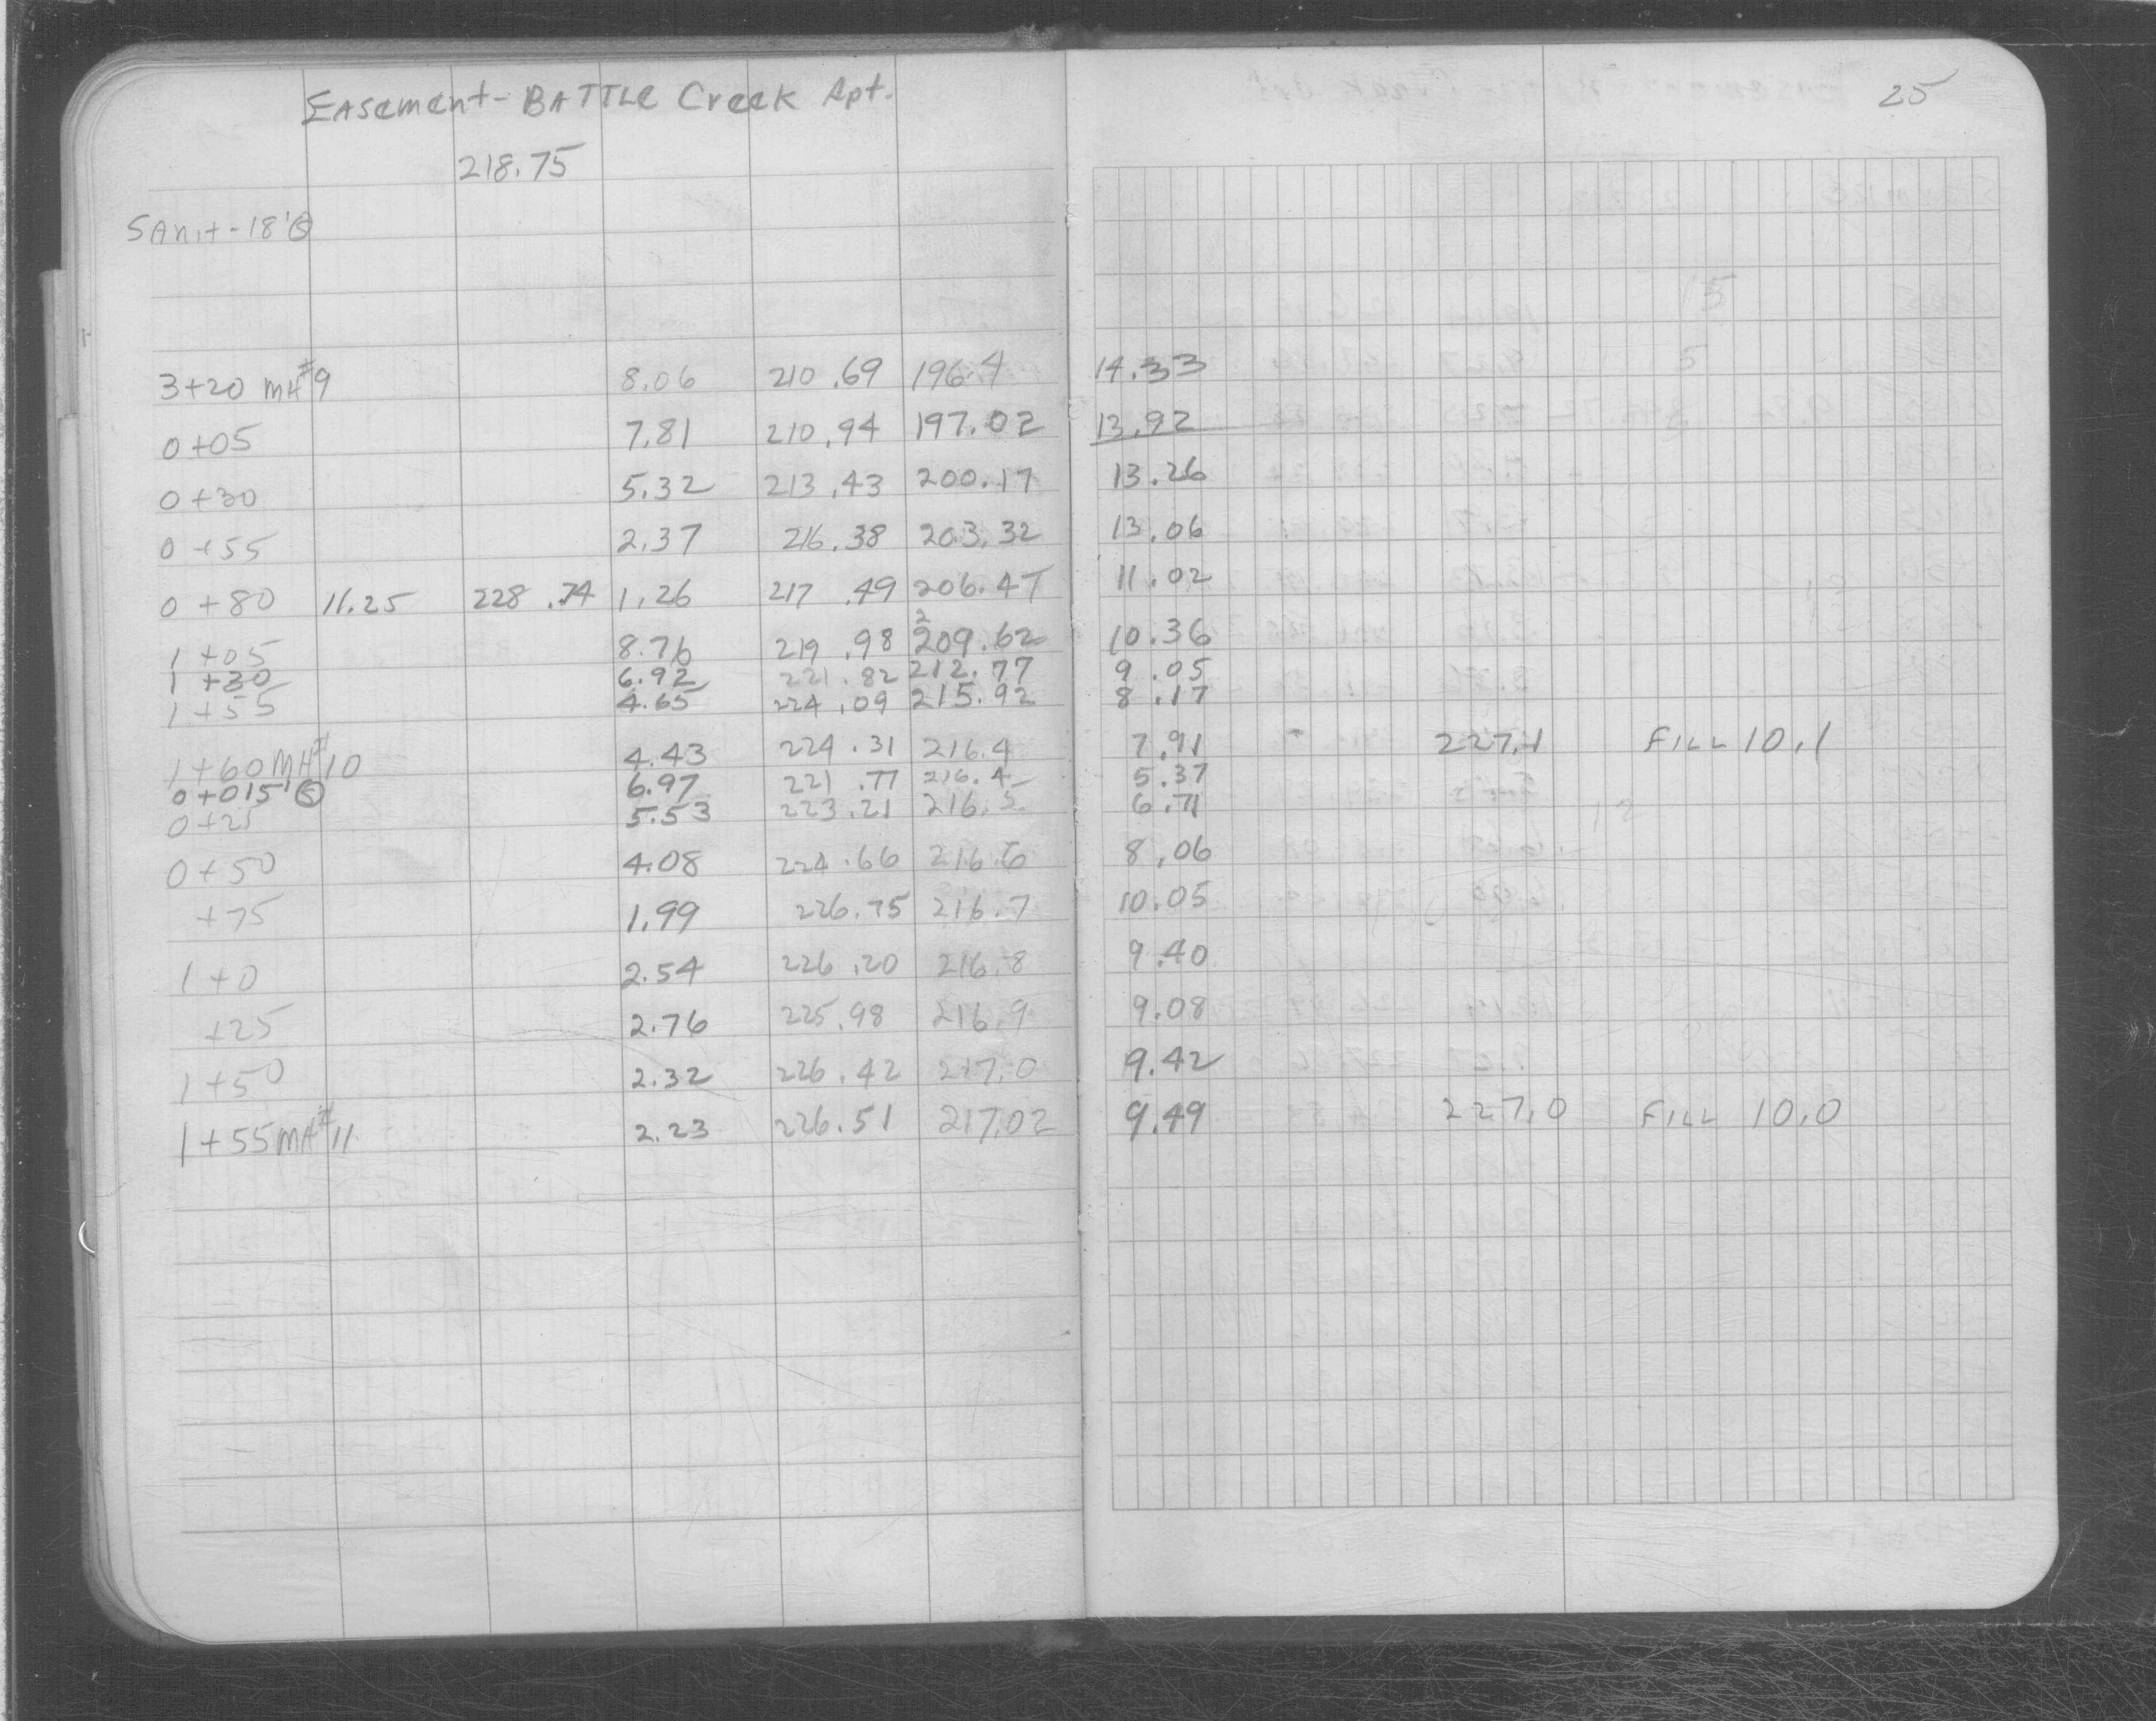 EASement - BATTLE Creek Apt. 25
218.75
SAnit - 18' Ⓢ
3+20 MH #9 8.06 210.69 196.4 14.33
0+05 7.81 210.94 197.02 13.92
0+30 5.32 213.43 200.17 13.26
0+55 2.37 216.38 203.32 13.06
0+80 11.25 228.74 1.26 217.49 206.47 11.02
1+05 8.76 219.98 209.62 10.36
1+30 6.92 221.82 212.77 9.05
1+55 4.65 224.09 215.92 8.17
1+60 MH #10 4.43 224.31 216.4 7.91 227.1 FILL 10.1
0+0 15' Ⓢ 6.97 221.77 216.4 5.37
0+25 5.53 223.21 216.5 6.71
0+50 4.08 224.66 216.6 8.06
+75 1.99 226.75 216.7 10.05
1+0 2.54 226.20 216.8 9.40
+25 2.76 225.98 216.9 9.08
1+50 2.32 226.42 217.0 9.42
1+55 MH #11 2.23 226.51 217.02 9.49 227.0 FILL 10.0